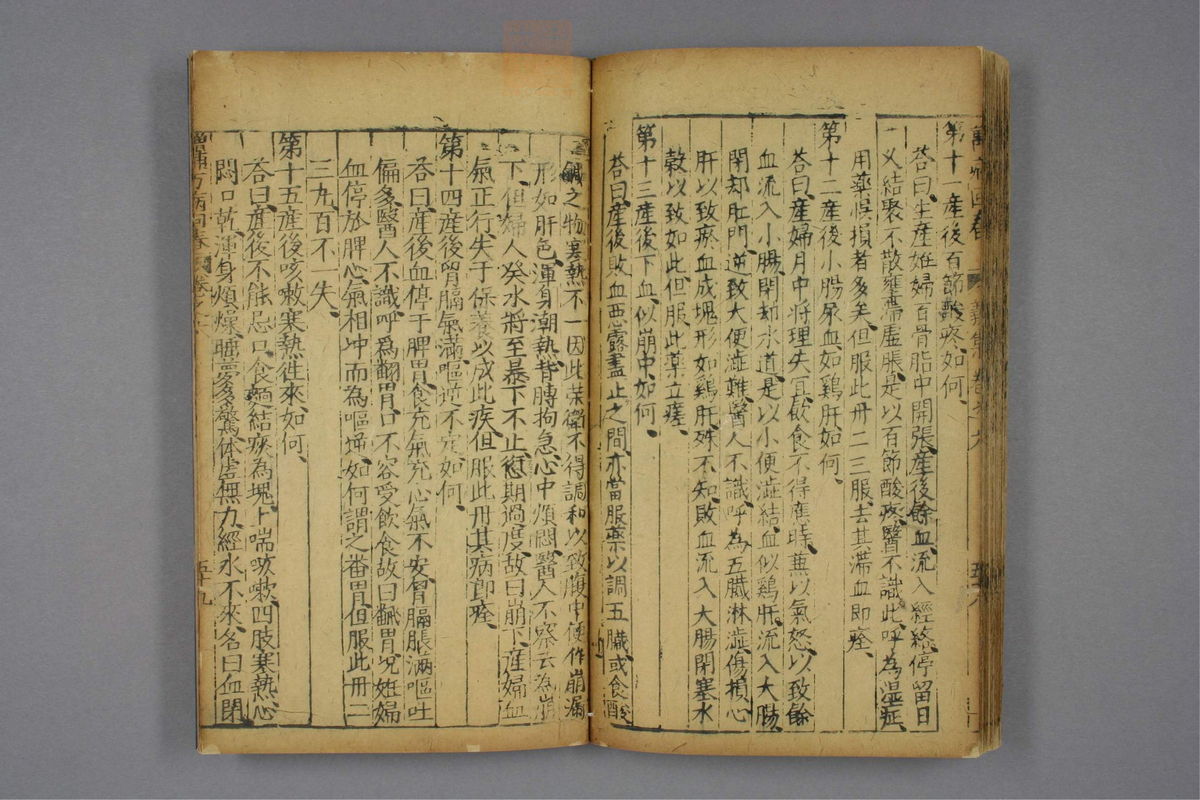 萬病回春
第十一產後百節酸疼如何
荅曰生產妊婦百骨脂中開張產後餘血流入經絡停留日
乂結聚不散壅滯虛脹是以百節酸疼醫不識此呼為濕症
用藥悞損者多矣但服此丹二三服去其滯血即痊
第十二產後小腸尿血如鷄肝如何
荅曰產婦月中將理失宜飲食不得應時蒹以氣怒以致餘
血流入小腸閉却水道是以小便澁結血似鷄肝流入大腸
閉却肛門逆致大便澁難醫人不識呼為五臟淋澁傷損心
肝以致瘀血成塊形如鷄肝殊不知敗血流入大腸閉塞水
穀以致如此但服此藥立瘥
第十三產後下血似崩中如何
荅曰產後敗血惡露盡止之間亦當服藥以調五臟或食酸
鹹之物寒熱不一因此荣衛不得調和以致腹中便作崩漏
形如肝色渾身潮熱背膊拘急心中煩悶醫人不察云為崩
下但婦人癸水將至暴下不止愆期過度故曰崩下產婦血
氣正行失于保養以成此疾但服此丹其病即痊
第十四產後胃膈氣滿嘔逆不定如何
荅曰產後血停于脾胃食充氣充心氣不安胃膈脹滿嘔吐
偏多醫人不識呼為翻胃口不容受飲食故曰飜胃況妊婦
血停於脾心氣相冲而為嘔逆如何謂之番胃但服此丹二
三九百不一失
第十五產後咳嗽寒熱徃來如何
荅曰產後不能忌口食麪結痰為塊上喘咳嗽四肢寒熱心
悶口乾渾身煩燥睡夢多驚体虛無力經水不來名曰血閉
增補万病回春
卷之六
五十九